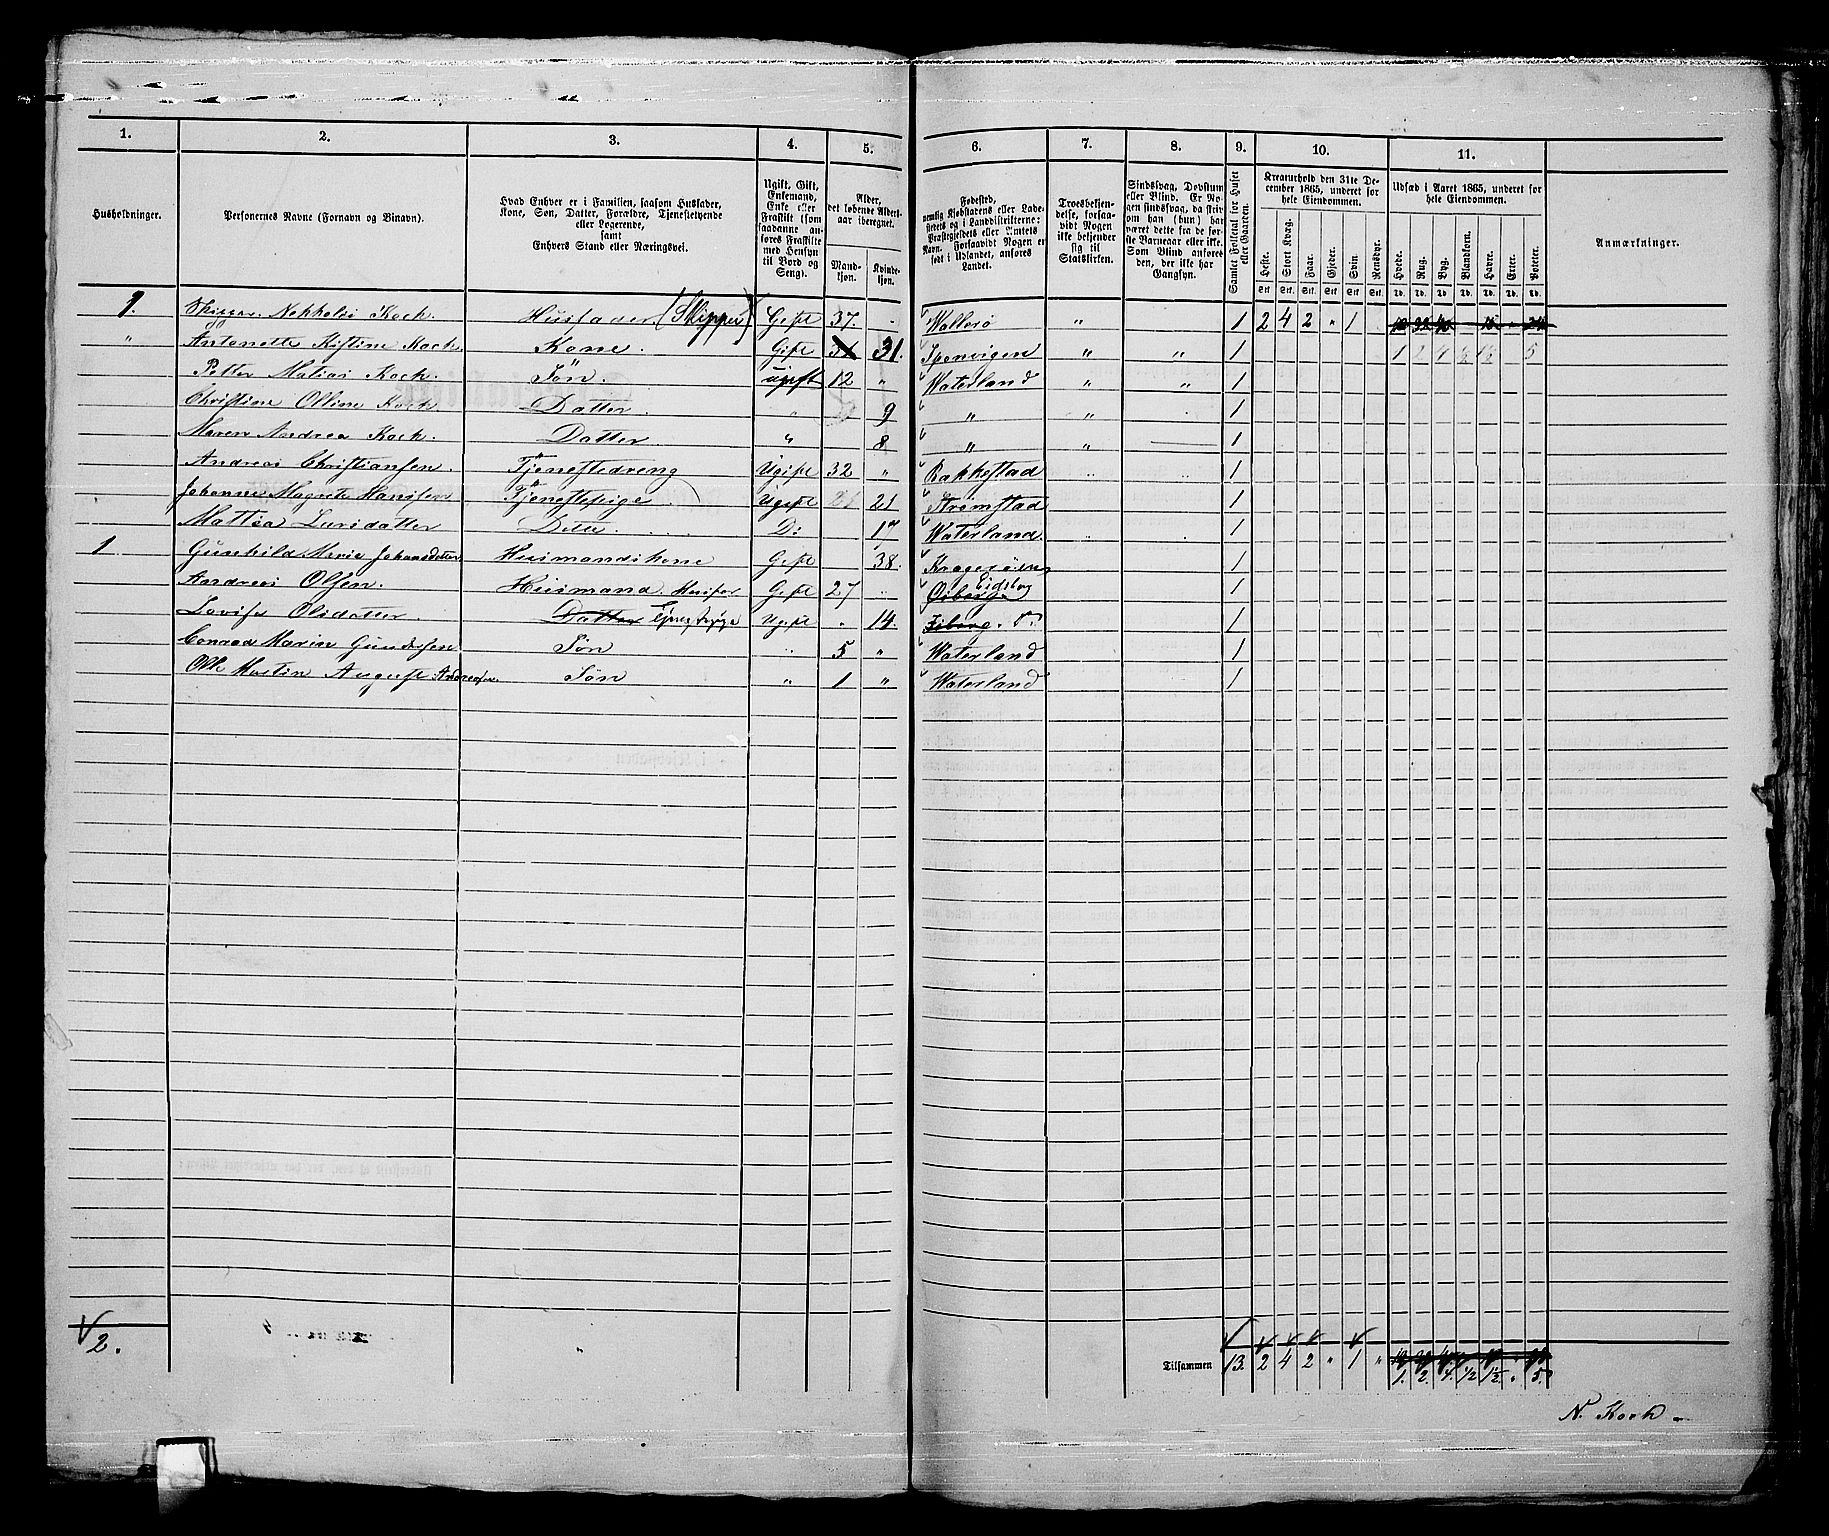 1. 2. 3. 4. 5. 6. 7. 8. 9. 10. 11.
Husholdninger.
Personernes Navne (Fornavn og Binavn).
Hvad Enhver er i Familien, saasom Husfader,
Kone, Søn, Datter, Forældre, Tjenestetyende
eller Logerende,
samt
Enhvers Stand eller Næringsvei.
Ugift, Gift,
Enkemand,
Enke eller
Fraskilt (som
saadanne an-
føres Fraskilte
med Hensyn
til Bord og
Seng).
Alder,
det løbende Alders-
aar iberegnet.
Mand-
kjøn.
Kvinde-
kjøn.
Fødested,
nemlig Kjøbstadens eller Lade-
stedets og i Landdistrikterne:
Præstegjeldets eller Amtets
Navn. Forsaavidt Nogen er
født i Udlandet, anføres
Landet.
Troesbekjen-
delse, forsaa-
vidt Nogen
ikke bekjender
sig til
Statskirken.
Sindssvag, Døvstum
eller Blind. Er No-
gen sindssvag, da skriv
om han (hun) har
været dette fra de før-
ste Barneaar eller ikke.
Som Blind anføres
den, der ikke har
Gangsyn.
Samlet Folketal for Huset
eller Gaarden.
Kreaturhold den 31te De-
cember 1865, underet for
hele Eiendommen.
Heste. Stort Kvæg. Faar. Gjeder. Svin. Rensdyr.
Stk. Stk. Stk. Stk. Stk. Stk.
Udsæd i Aaret 1865, underet for
hele Eiendommen.
Hvede. Rug. Byg. Blandkorn. Havre. Erter. Poteter.
Td. Td. Td. Td. Td. Td. Td.
Anmærkninger.
1. Koch. Husfader (Skipper) Gift 37. " Wallersö " 1 2 4 2 " 1
" Antonette Kistine Koch. Kone. Gift 31. Spenvigen " " 1 1 2 4 ½ 1½ 5
Petter Matias Koch. Søn. ugift 12 " Waterland " " 1
Christine Olline Koch Datter. " 9 " " 1
Maren Andrea Koch. Datter. " 8 " " 1
Andreas Christiansen. Tjenestedreng Ugift 32 " Rakkestad 1
Johanne Magrete Hansen Tjenestepige Ugift 21 Strømstad 1
Mattea Larsdatter Ditto D: 17 Waterland 1
1 Gunhild Maria Johansdatter Husmandskone Gift 38. 1
Andreas Olsen. Husmand Gift 27 Eidsberg 1
Lovise Olsdatter. Datter Ugift " 14. 1
Conrad Marin Gundersen Søn " 5 " Waterland 1
Olle Martin August Andreasen Søn " 1 " Waterland 1
2. Tilsammen 13. 2 4 2 " 1 "
1. 2. 4. ½ 1½ " 5.
N. Koch